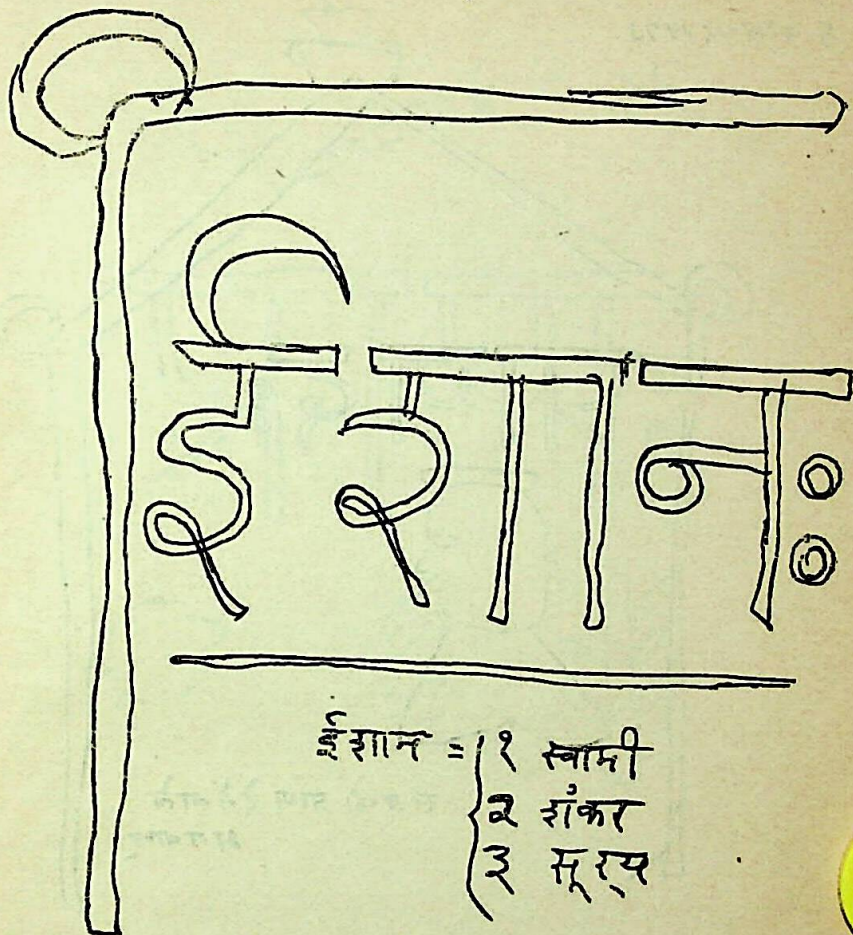 ईशानः
ईशान = १ स्वामी
२ शंकर
३ सूर्य